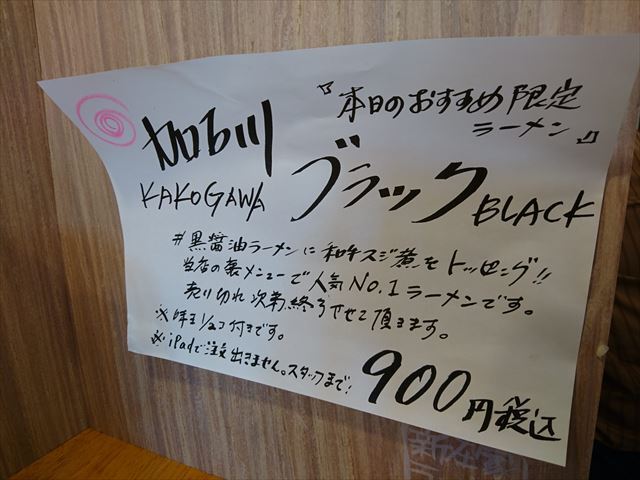 『本日のおすすめ限定
ラーメン』
加古川
ブラック
KAKOGAWA
BLACK
#黒醤油ラーメンに和牛スジ煮をトッピング!!
当店の裏メニューで人気NO.1ラーメンです。
売り切れ次第終了させて頂きます。
※味玉1/2コ付きです。
※iPadで注文出来ません。スタッフまで!
900円税込